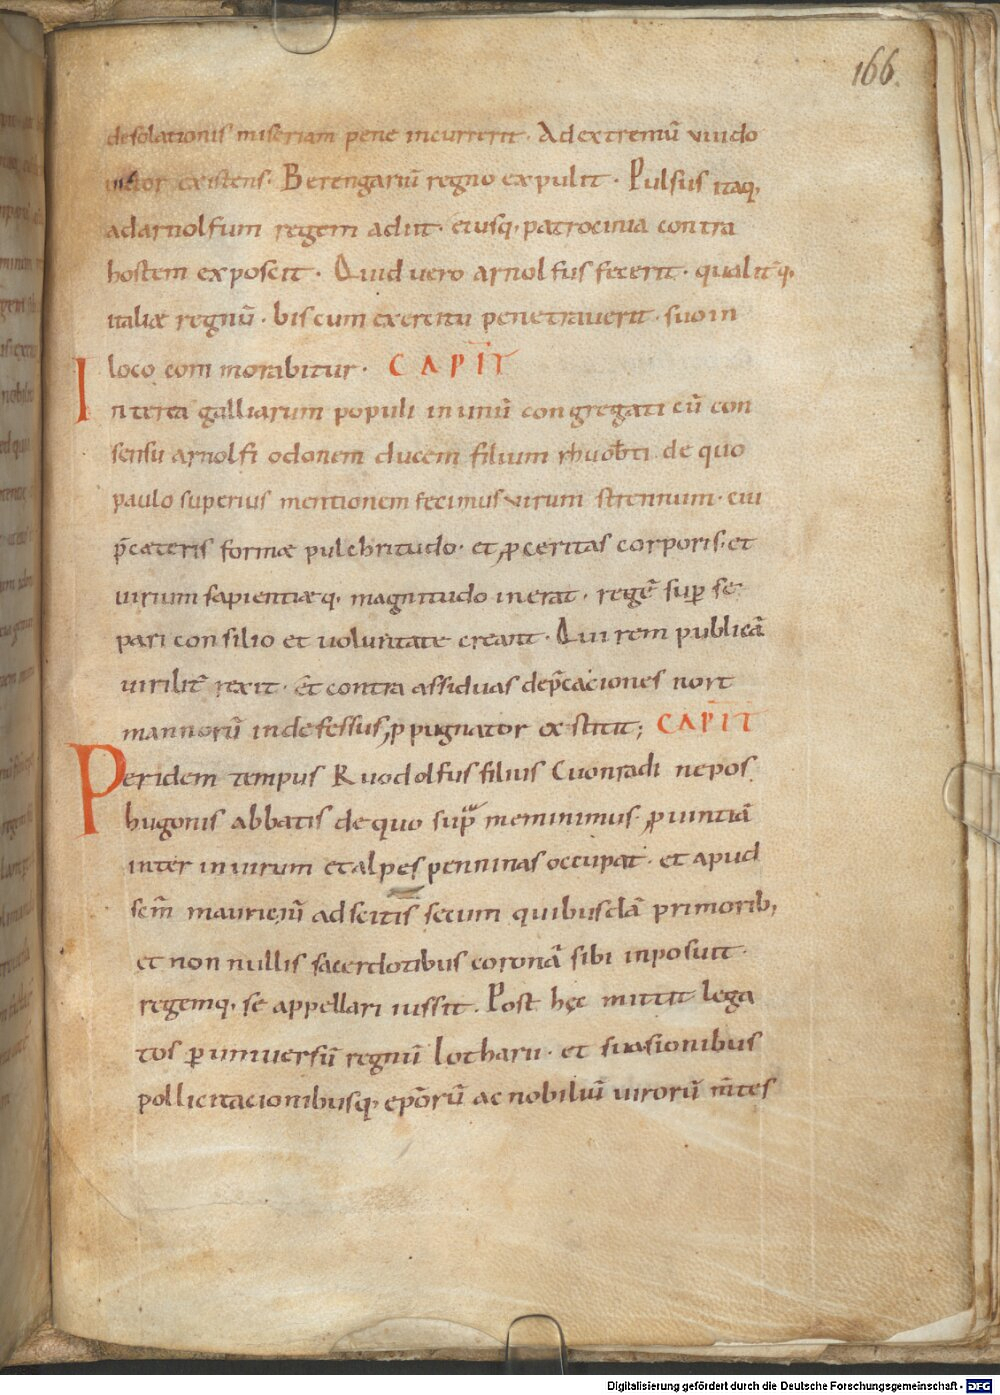 166.
desolationis miseriam pene incurrerit. Ad extremũ vuido
victor existens. Berengariũ regno expulit. Pulsus itaq;
ad arnolfum regem adiit. eiusq; patrocinia contra
hostem exposcit. Quid vero arnolfus fecerit. qualit̃q;
italiæ regnũ. bis cum exercitu penetraverit. suo in
loco commorabitur. CAPIT̅
Interea galliarum populi in unũ congregati cũ con
sensu arnolfi odonem ducem filium rhuotb̅ti de quo
paulo superius mentionem fecimus virum strennum. cui
p̃ cæteris formæ pulchritudo. et ꝓceritas corporis. et
virium sapientiæq; magnitudo inerat. regẽ sup̱ se
pari consilio et voluntate creant. Qui rem publicã
virilit̃ rexit. Et contra assiduas dep̃caciones nort
mannorũ indefessus ꝓpugnator exstitit; CAPIT̅
Per idem tempus Ruodolfus filius Cuonradi nepos
hugonis abbatis de quo sup̃ meminimus. ꝓvintiã
inter iuirum et alpes penninas occupat. et apud
sc̅m mauriciũ adscitis secum quibusdã primorib;
et non nullis sacerdotibus coronã sibi inposuit.
regemq; se appellari iussit. Post hęc mittit lega
tos ꝑ universũ regnũ lotharii. et suasionibus
pollicitacionibusq; ep̅orũ ac nobiliũ virorũ m̅tes
Digitalisierung gefördert durch die Deutsche Forschungsgemeinschaft - DFG